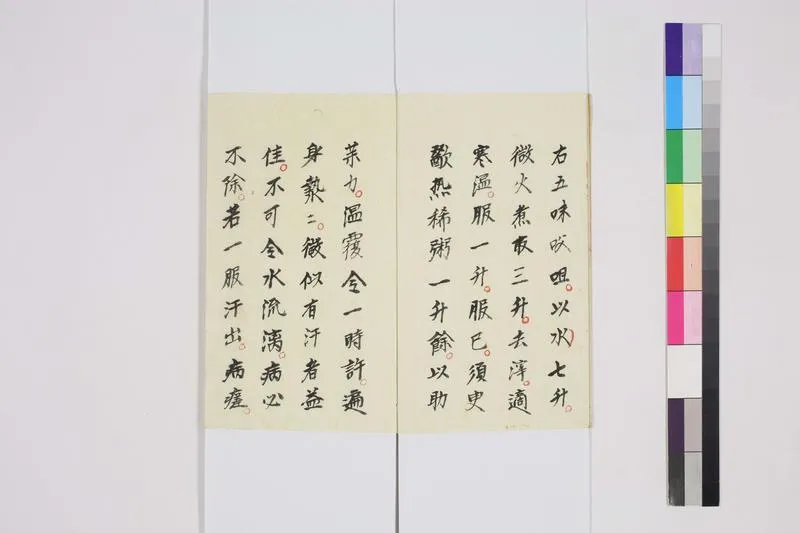 右五味㕮咀。以水七升。
微火煮取三升。去滓。適
寒温。服一升。服已。須臾
歠熱稀粥一升餘。以助
薬力。温覆令一時許。遍
身漐〻。微似有汗者益
佳。不可令水流漓。病必
不除。若一服汗出。病瘥。